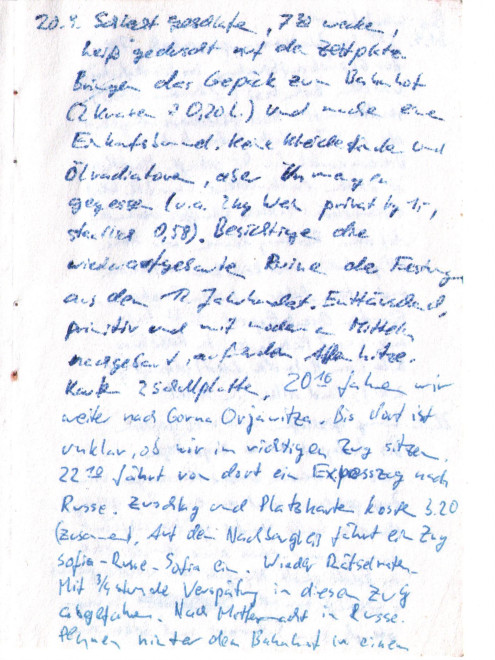 20. geschlafen, 7 30 wecken,
heiß geduscht auf dem Zeltplatz.
Bringen das Gepäck zum Bahnhof
(2 à 0,20 L.) und machen einen
Einkaufsbummel. Keine und
Ölradiatoren, aber
gegessen (u.a. privat kg 1,-,
staatlich 0,58). Besichtigen die
wiederaufgebaute Ruine der Festung
aus dem Jahrhundert. Enttäuschend,
primitiv und mit modernen Mitteln
nachgebaut, außerdem Affenhitze.
Kaufen 2 Schallplatten, 20 16 fahren wir
weiter nach Gorna Orjawitza. Bis dort ist
unklar, ob wir im richtigen Zug sitzen.
22 10 fährt von dort ein Expresszug nach
Russe. Zuschlag und Platzkarten kosten 3.20
(zusammen). Auf dem Nachbargleis fährt ein Zug
Sofia-Russe-Sofia ein. Wieder Rätselraten.
Mit 3/4 Stunde Verspätung in diesem Zug
abgefahren. Nach Mitternacht in Russe.
hinter dem Bahnhof in einem